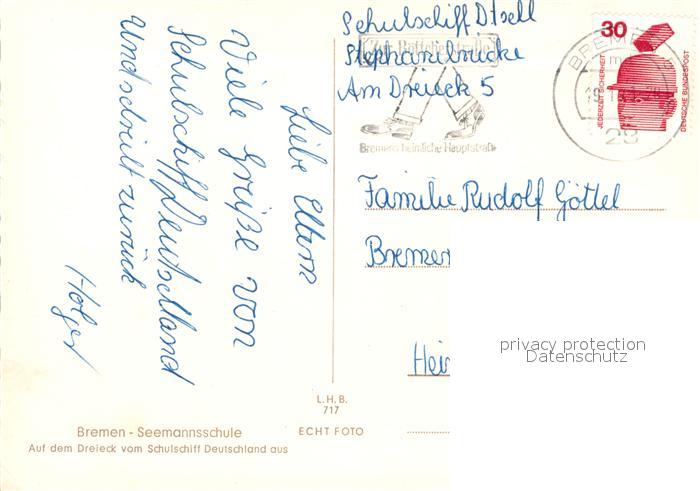 Liebe Eltern
Viele Grüße von
Schulschiff Deutschland
und schreibt zurück
Holger
Schulschiff Dtsell
Stephanibrücke
Am Dreieck 5
Zur Böttcherstraße
Bremens heimliche Hauptstraße
BREMEN
28
30
JEDERZEIT SICHERHEIT
DEUTSCHE BUNDESPOST
Familie Rudolf Göttel
Bremer
Hei
privacy protection
Datenschutz
L.H.B.
717
Bremen - Seemannsschule
ECHT FOTO
Auf dem Dreieck vom Schulschiff Deutschland aus